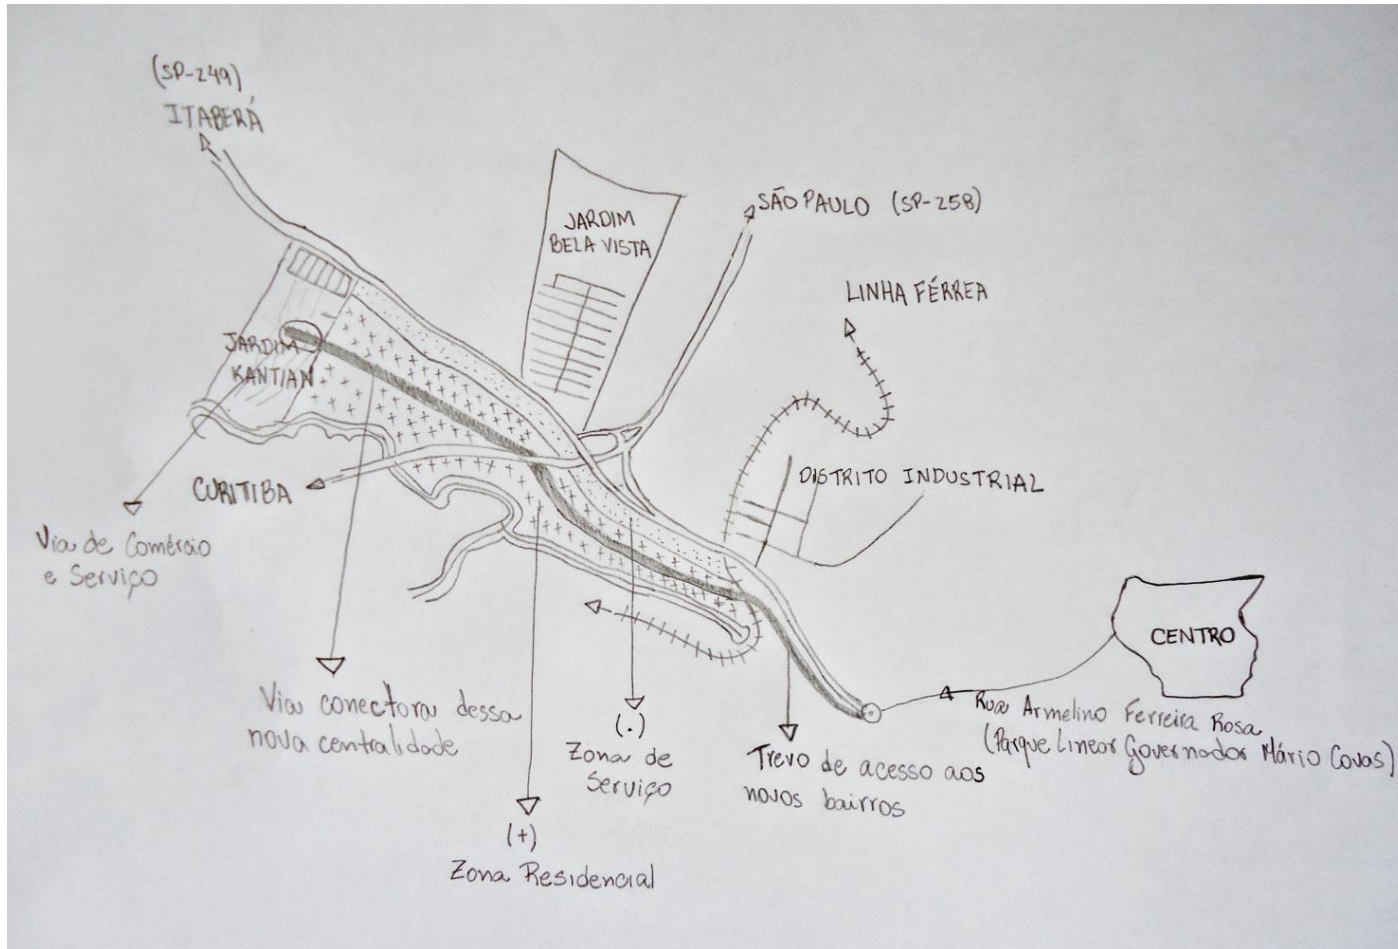 (SP-249)
ITABERÁ
JARDIM
BELA VISTA
SÃO PAULO (SP-258)
LINHA FÉRREA
JARDIM
KANTIAN
CURITIBA
DISTRITO INDUSTRIAL
Via de Comércio
e Serviço
CENTRO
Via conectora dessa
nova centralidade
(.)
Zona de
Serviço
Trevo de acesso aos
novos bairros
Rua Armelino Ferreira Rosa
(Parque Linear Governador Mário Covas)
(+)
Zona Residencial